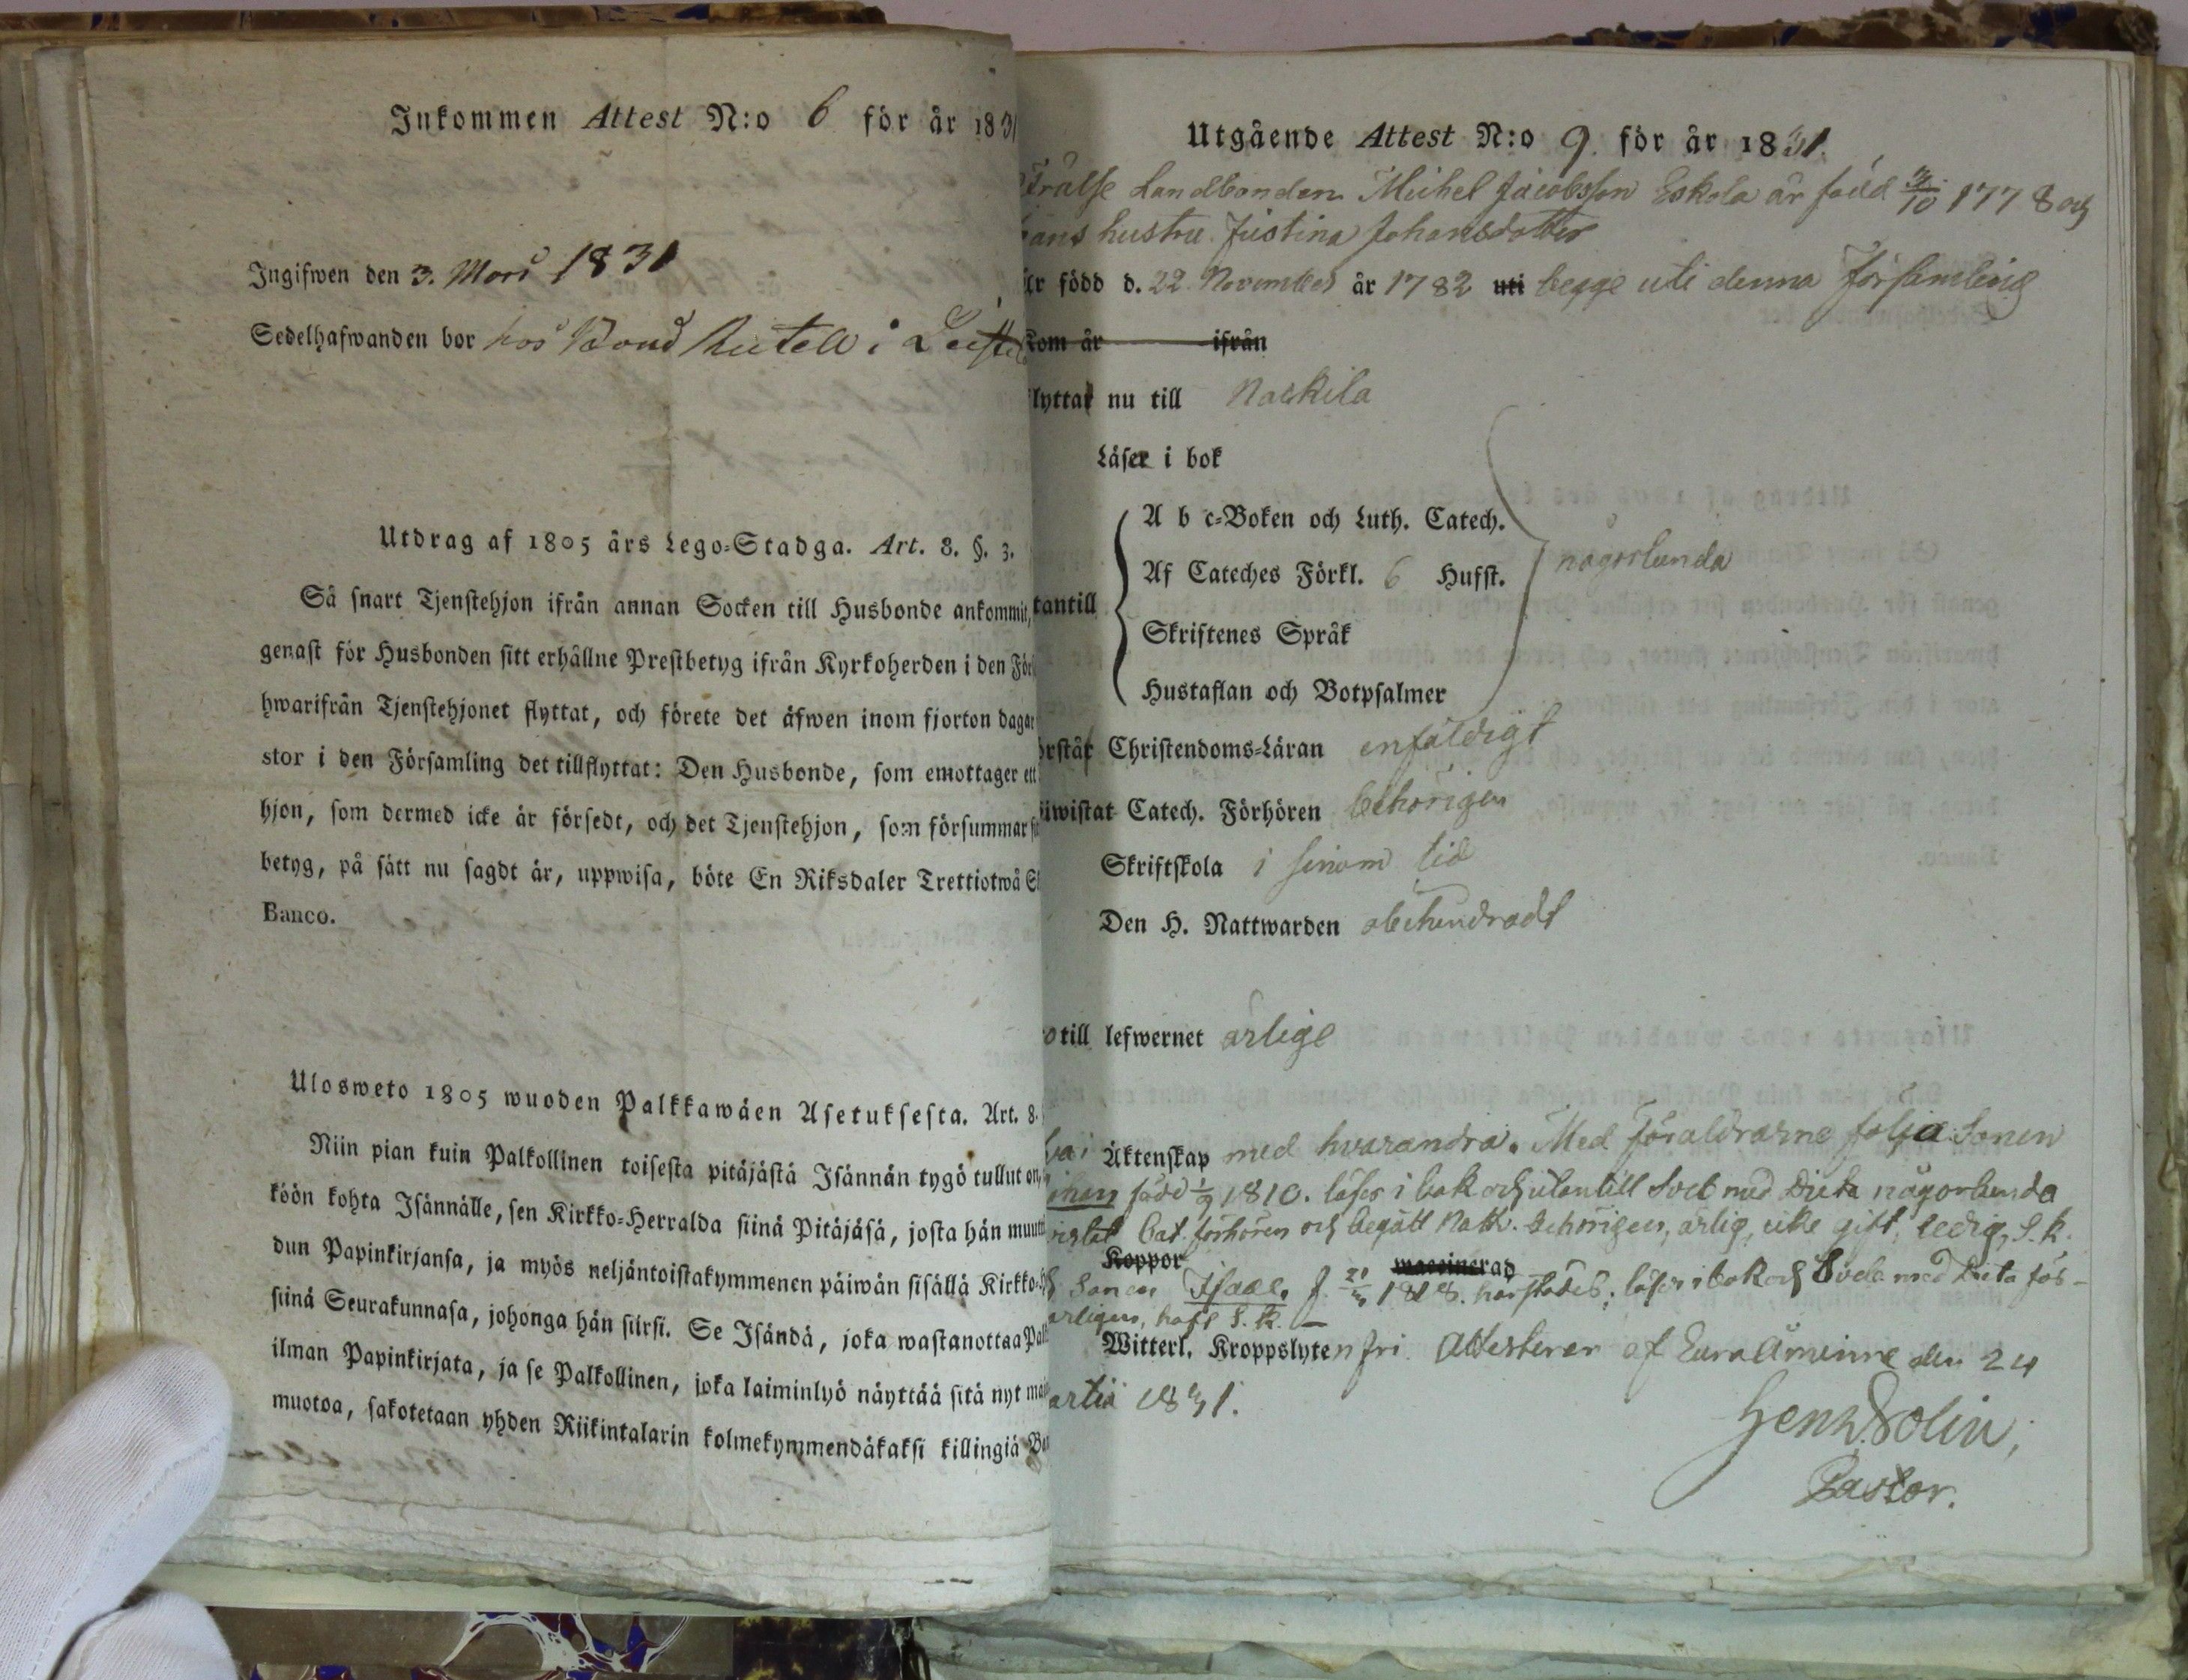 Inkommen Attest N:o 6 för år 1831
Ingifwen den 3. Mars 1831
Sedelhafwanden bor hos Bond i
Utdrag af 1805 års Lego-Stadga. Art. 8. §. 3.
Så snart Tjenstehjon ifrån annan Socken till Husbonde ankommit,
genast för Husbonden sitt erhållne Prestbetyg ifrån Kyrkoherden i den För
hwarifrån Tjenstehjonet flyttat, och förete det äfwen inom fjorton dagar
stor i den Församling det tillflyttat: Den Husbonde, som emottager ett
hjon, som dermed icke är försedt, och det Tjenstehjon, som försummar
betyg, på sätt nu sagdt är, uppwisa, böte En Riksdaler Trettiotwå
Banco.
Ulosweto 1805 wuoden Palkkawäen Asetuksesta. Art. 8.
Niin pian kuin Palkollinen toisesta pitäjästä Isännän tygö tullut on,
köön kohta Isännälle, sen Kirkko-Herralda siinä Pitäjäsä, josta hän muutti
dun Papinkirjansa, ja myös neljäntoistakymmenen päiwän sisällä Kirkko
siinä Seurakunnasa, johonga hän siirsi. Se Isändä, joka wastanottaa Pal
ilman Papinkirjata, ja se Palkollinen, joka laiminlyö näyttää sitä nyt
muotoa, sakotetaan yhden Riikintalarin kolmekymmendäkaksi killingiä
Utgående Attest N:o 9. för år 1831.
Frälse Landbonden Michel Jacobsson Eskola är född 3/10 1778 och
hans hustru Justina Johansdotter
är född d. 22 November år 1782 uti begge uti denna Församling
kom år ifrån
flyttar nu till Nackila
Läser i bok
A b c-Boken och Luth. Catech.
Af Cateches Förkl. 6 Hufst. någorlunda
utantill
Skriftenes Språk
Hustaflan och Botpsalmer
Förstår Christendoms-Läran enfaldigt
Biwistat Catech. Förhören behörigen
Skriftskola i sinom tid
Den H. Nattwarden obehindradt
till lefwernet ärlige
Äktenskap med hvarandra. Med Föräldrarne följa Sonen
född 1/9 1810. läser i bok och utantill med någorlunda
Cat. förhören och begått Nattv. behörigen, ärlig, icke gift, ledig, S. k.
Koppor waccinerad
Sonen Isaac, f. 1818. läser i bok och
haft S. k.
Witterl. Kroppslyten fri. Attesterar af Eura Åminne den 24
Martii 1831.
Henr. Solin,
Pastor.